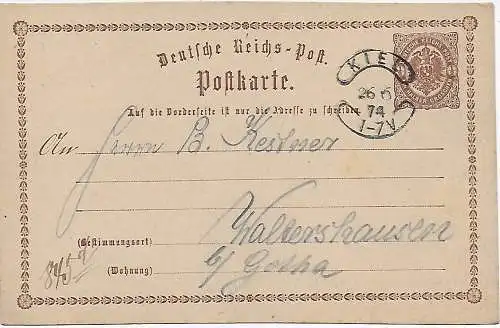 Deutsche Reichs-Post.
Postkarte.
KIEL
26 6
74
1-7V
Auf die Vorderseite ist nur die Adresse zu schreiben.
An Herrn B. Kestner
Waltershausen
(Bestimmungsort)
b/ Gotha
(Wohnung)